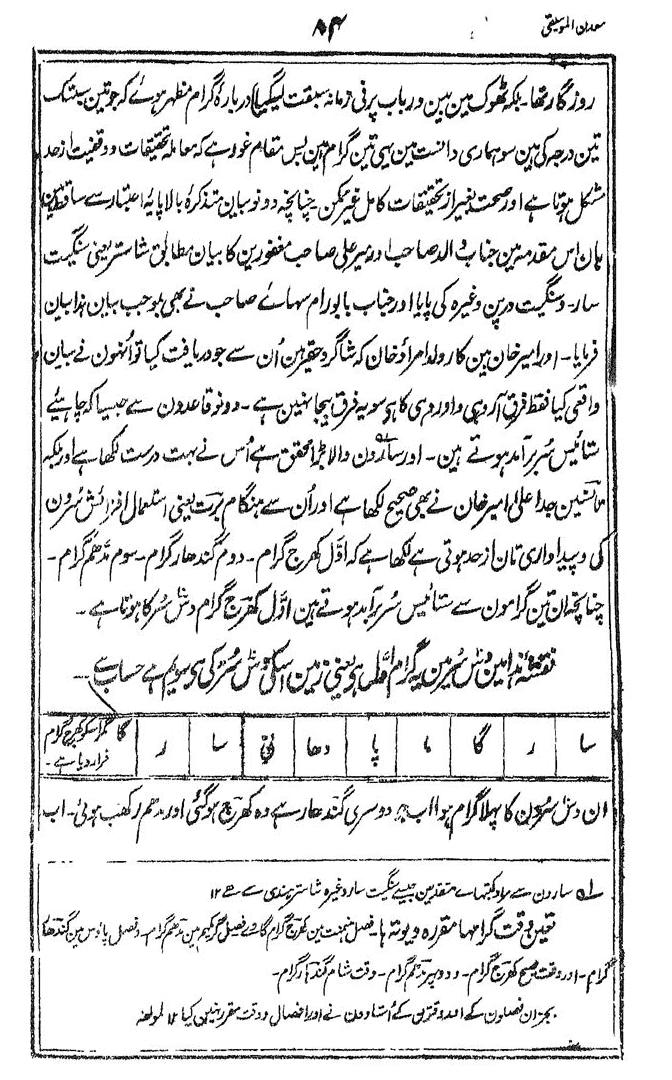 معدن الموسیقی
۸۴
روزگار تھا۔ بلکہ ٹھوک مین بین و رباب پر فی زمانہ سبقت لیگیا) دربارۂ گرام مظہر ہوئے کہ جو تین سپتک
تین درجہ کی ہین سو ہماری دانست مین یہی تین گرام ہین پس مقام غور ہے کہ معاملہ تحقیقات و وقفیت از حد
مشکل ہوتا ہے اور صحت بغیر از تحقیقات کامل غیر ممکن چنانچہ دونو بیان متذکرۂ بالا پایۂ اعتبار سے ساقط ہین
ہان اس مقدمہ مین جناب والد صاحب اور میر علی صاحب مغفورین کا بیان مطابق شاستر یعنی سنگیت
سار۔ و سنگیت درپن وغیرہ کی پایا اور جناب بابو رام سہائے صاحب نے بھی بموجب بیان ہذا بیان
فرمایا۔ اور امیر خان بین کار ولد امراؤ خان کہ شاگرد حقیر ہین اُن سے جو دریافت کیا تو اُنہون نے بیان
واقعی کیا فقط فرق آروہی و اوروہی کا ہو سو یہ فرق بیجا نہین ہے۔ دونو قاعدون سے جیسا کہ چاہئیے
ستائیس سُر برآمد ہوتے ہین۔ اور سارون والا بڑا محقق ہے اُس نے بہت درست لکھا ہے اور بلکہ
تانسین جد اعلیٰ امیر خان نے بھی صحیح لکھا ہے اور اُن سے ہنگام برت یعنی استعمال افزائش سُرون
کی و پیداواری تان از حد ہوتی ہے لکھا ہے کہ اوّل کھرج گرام۔ دوم گندھار گرام۔ سوم مدھم گرام۔
چنانچہ ان تین گرامون سے ستائیس سُر برآمد ہوتے ہین اوّل کھرج گرام دس سُر کا ہوتا ہے۔
نقشہ ہذا مین دس سُر ہین یہ گرام اوّل ہو یعنی زمین اسکی دس سُر کی ہو سو یہ ہے حساب سے
سا ر گا ما پا دھا نی سا ر گا گمر اسکو کھرج گرام قرار دیا ہے۔
ان دس سُرون کا پہلا گرام ہوا اب دوسری گندھار ہے وہ کھرج ہوگئی اور مدھم رکھب ہوئی۔ اب
لہ سارون سے مراد کتبہائے متقدمین جیسے سنگیت سار وغیرہ شاستر ہندی سے ہے ۱۲
تعین وقت گرامہا مقررہ دیوتہا۔ فصل ہیمنت مین کھرج گرام گاوے فصل گریکھم مین مدھم گرام۔ و فصل پاوس مین گندھار
گرام۔ اور وقت صبح کھرج گرام۔ و دوپہر مدھم گرام۔ وقت شام گندھار گرام۔
بجز ان فصلون کے اور وقتون کے اُستادون نے اور افصال و وقت مقرر نہین کیا ۱۲ لمولفہ